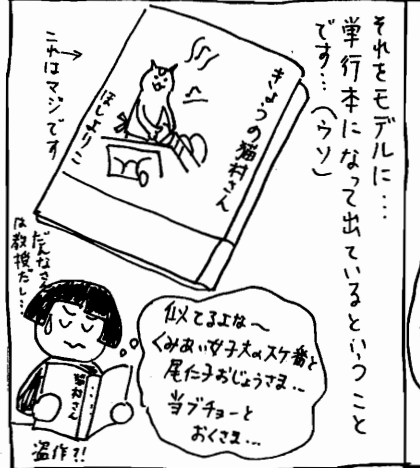 それをモデルに…
単行本になって出ているということ
です…(ウソ)
きょうの猫村さん
ほしよりこ
これはマジです
だんなさん
は教授だし…
似てるよな〜
くみあい女子大のスケ番と
尾仁子おじょうさま…
当ブチョーと
おくさま…
猫村さん
盗作?!